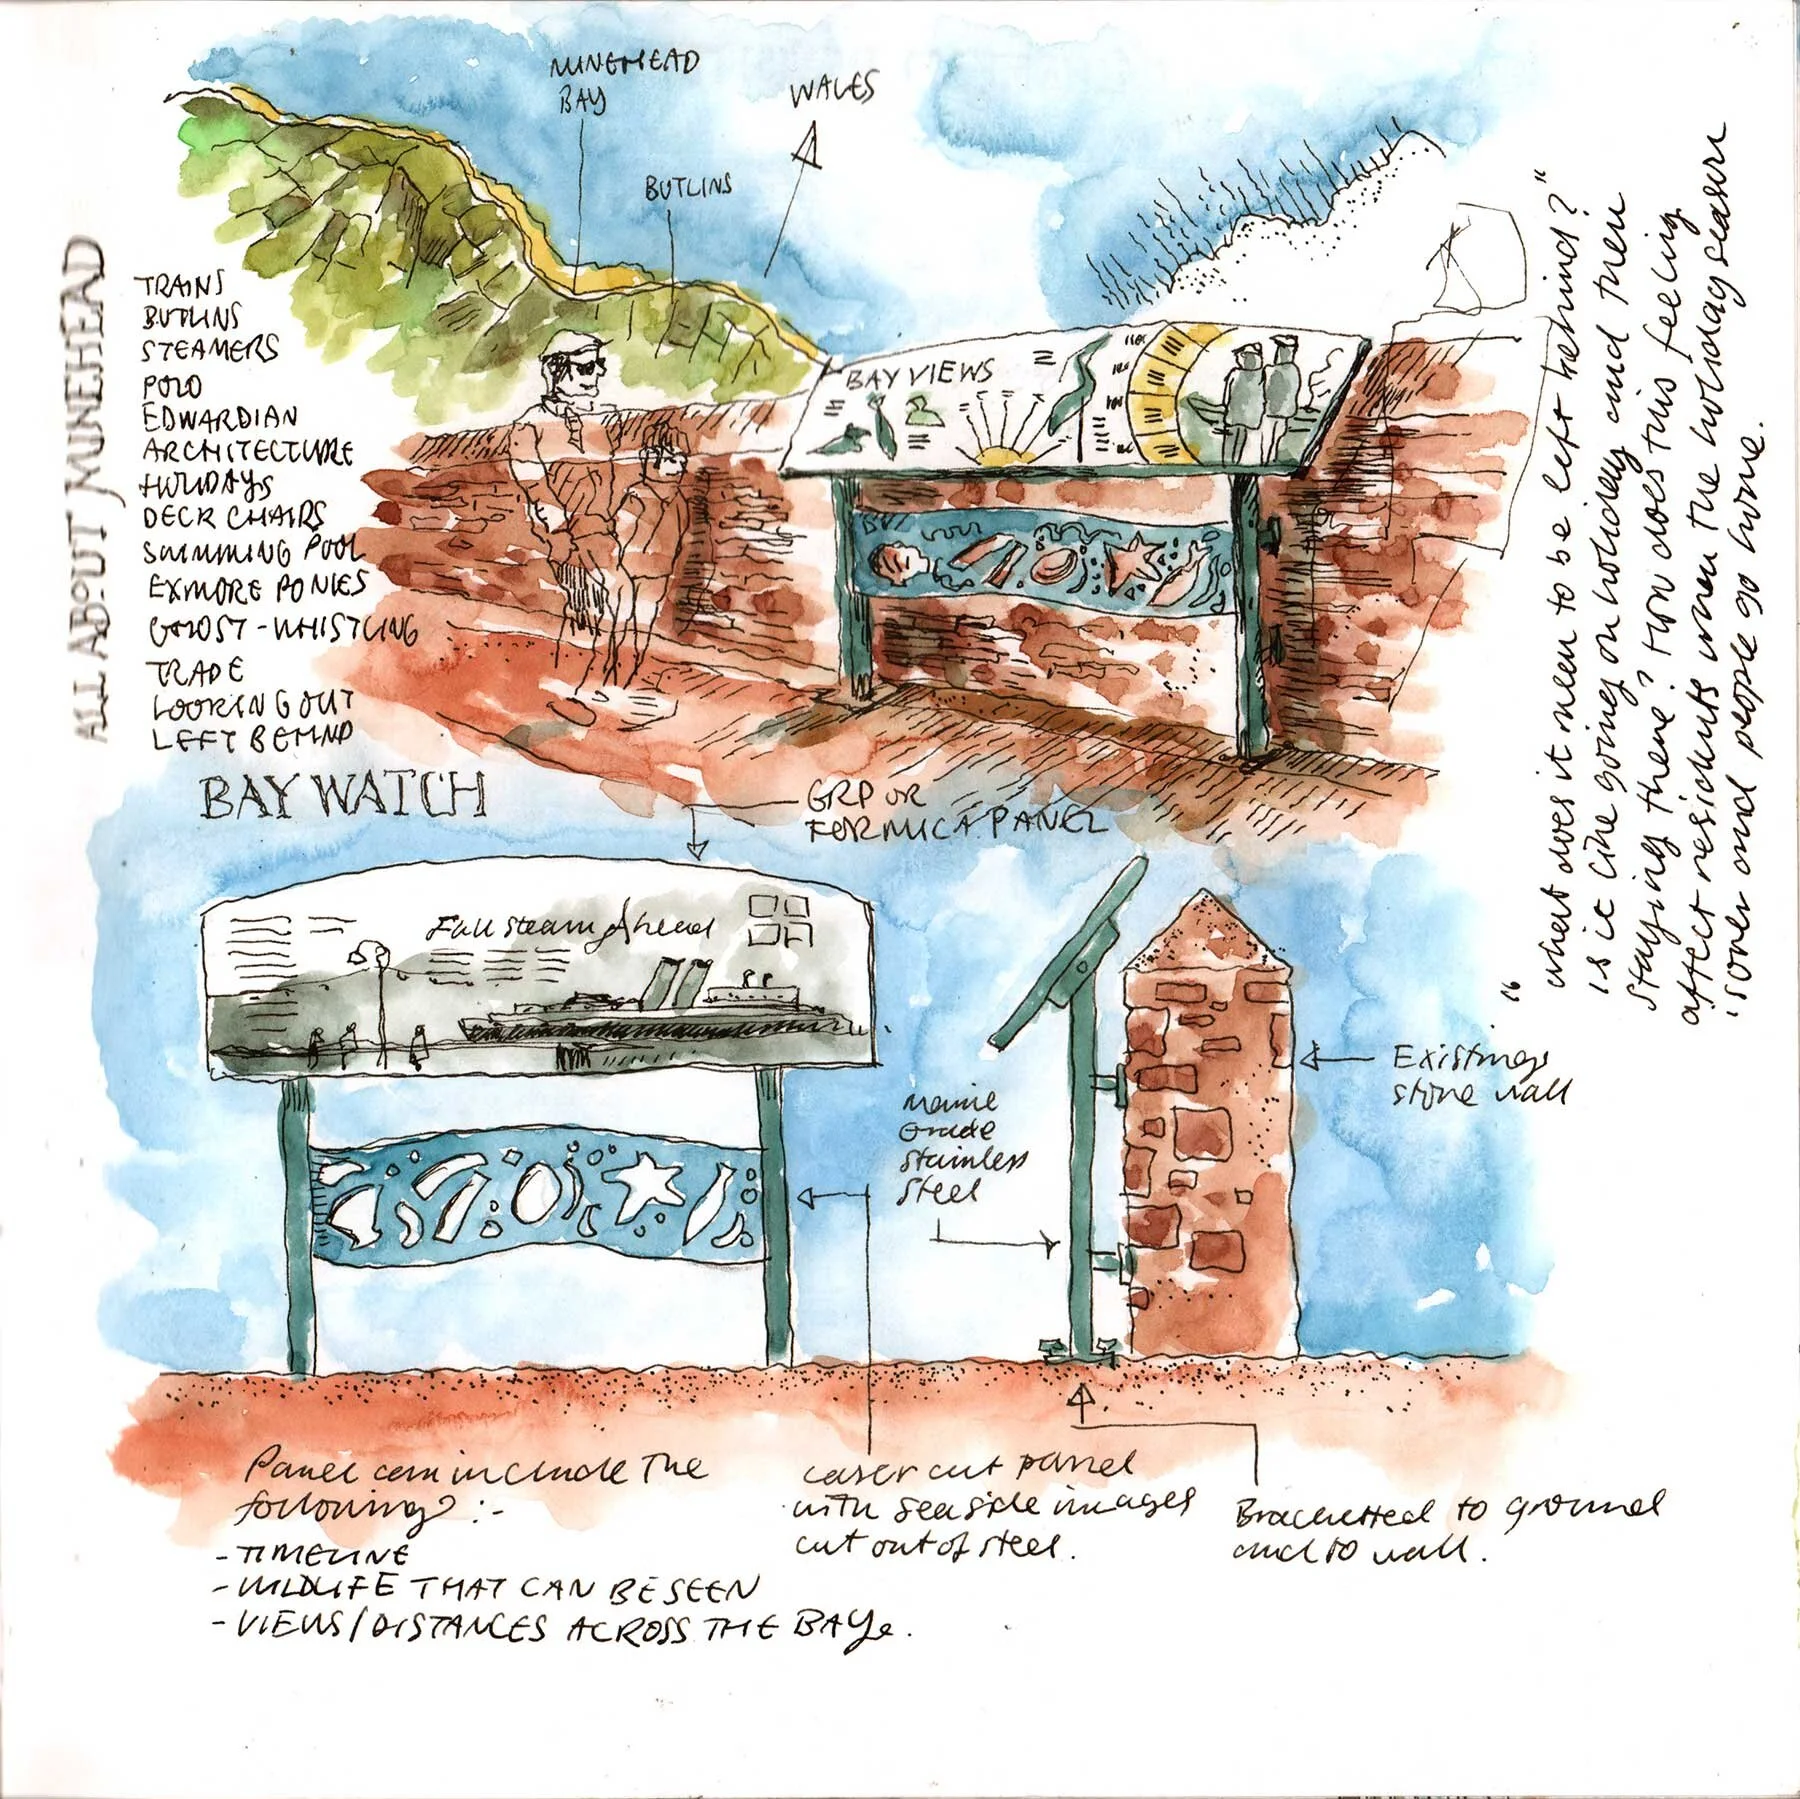 ALL ABOUT MINEHEAD
MINEHEAD
BAY
WALES
BUTLINS
TRAINS
BUTLINS
STEAMERS
POLO
EDWARDIAN
ARCHITECTURE
HOLIDAYS
DECK CHAIRS
SWIMMING POOL
EXMORE PONIES
GHOST-WHISTLING
TRADE
LOOKING OUT
LEFT BEHIND
BAY VIEWS
"what does it mean to be left behind?"
is it like going on holiday and then
staying there? How does this feeling
affect residents when the holiday season
is over and people go home.
BAY WATCH
GRP OR
FORMICA PANEL
Full Steam Ahead
Marine
Grade
stainless
steel
Existing
stone wall
Panel can include the
following :-
- TIMELINE
- WILDLIFE THAT CAN BE SEEN
- VIEWS/DISTANCES ACROSS THE BAY.
Laser cut panel
with seaside images
cut out of steel.
Bracketted to ground
and to wall.